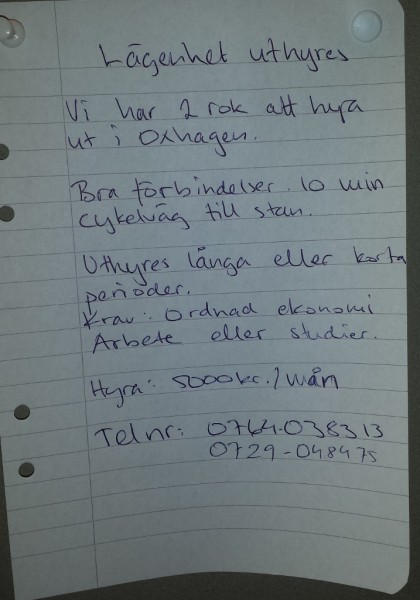 Lägenhet uthyres
Vi har 2 rok att hyra
ut i Oxhagen.
Bra förbindelser. 10 min
cykelväg till stan.
Uthyres långa eller korta
perioder.
Krav: Ordnad ekonomi
Arbete eller studier.
Hyra: 5000kr./mån
Telnr: 0764-038313
0729-048475